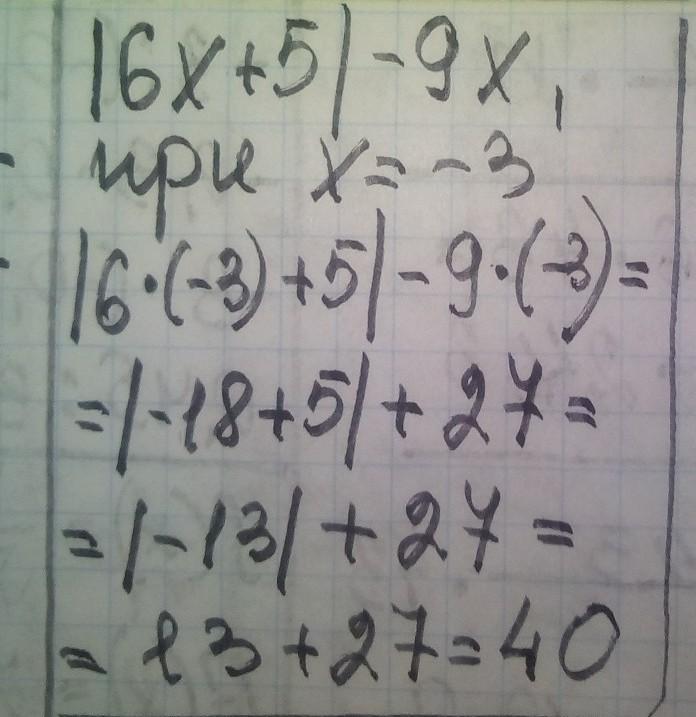 |6x+5|-9x,
при x=-3
|6·(-3)+5|-9·(-3)=
=|-18+5|+27=
=|-13|+27=
=13+27=40